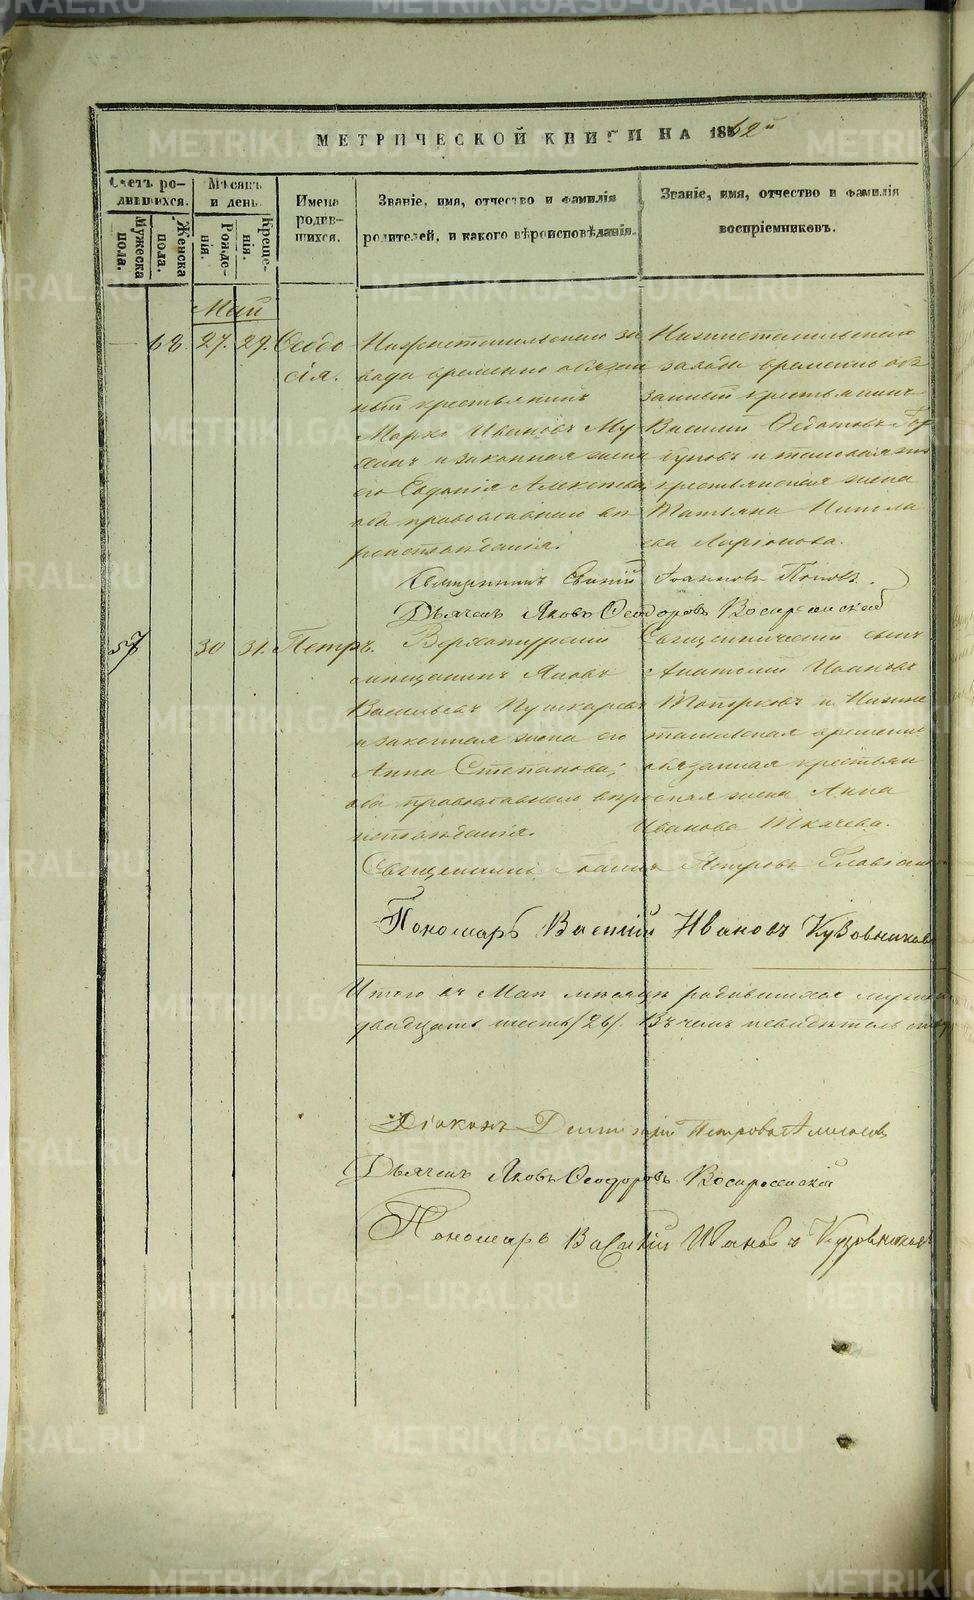 МЕТРИЧЕСКОЙ КНИГИ НА 1862й
Счетъ родившихся.
Мѣсяцъ и день.
Имена родившихся.
Званіе, имя, отчество и фамилія родителей, и какого вѣроисповѣданія.
Званіе, имя, отчество и фамилія воспріемниковъ.
Мужеска пола.
Женска пола.
Рожденія.
Крещенія.
Май
68. 27. 29. Ѳеодо
сія.
Нижнетагильскаго за
вода временно обязан
ный крестьянинъ
Марко Ивановъ Му
и законная жена
его Евдокія Алексѣева,
оба православнаго вѣ
роисповѣданія.
Нижнетагильскаго
завода временно обя
занный крестьянинъ
Василій Ѳедотовъ Гор
и
крестьянская жена
Татьяна
ева Ларіонова.
Священникъ Іоанновъ Поповъ.
Дьячекъ Яковъ Ѳеодоровъ Воскресенскій
57 30 31. Петръ.
Верхотурскій
мѣщанинъ Яковъ
Васильевъ Пушкаревъ
и законная жена его
Анна Степанова;
оба православнаго вѣро
исповѣданія.
Священническій сынъ
Анатолій Ивановъ
Топорковъ и Нижне
тагильская временно
обязанная крестьян
ская жена Анна
Иванова Ткачева.
Священникъ Іоаннъ Петровъ
Пономарь Василій Ивановъ Кузовниковъ
Итого въ Маѣ мѣсяцѣ родившихся
двадцать шесть /26/. Въ чемъ
Діаконъ Димитрій Петровъ
Дьячекъ Яковъ Ѳеодоровъ Воскресенскій
Пономарь Василій Ивановъ Кузовниковъ
METRIKI.GASO-URAL.RU